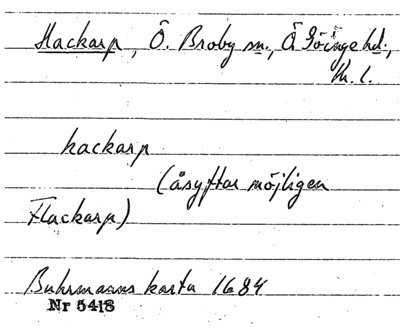 Hackarp, Ö. Broby sn., Ö. Göinge hd.,
Kr. l.
hackarp
(åsyftar möjligen
Flackarp)
Buhrmanns karta 1684
Nr 5418